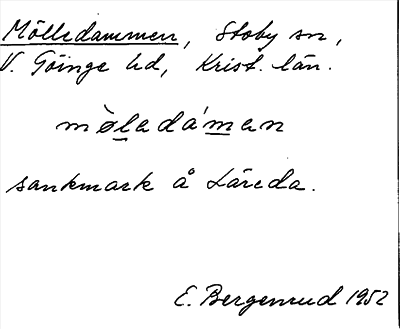 Mölledammen, Stoby sn,
V. Göinge hd, Krist. län.
mø̀ladá'man
sankmark å Läreda.
E. Bergenrud 1952